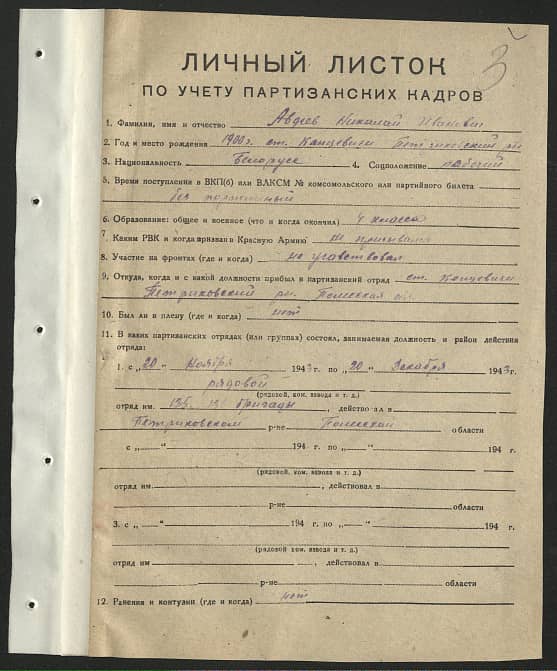 3
ЛИЧНЫЙ ЛИСТОК
ПО УЧЕТУ ПАРТИЗАНСКИХ КАДРОВ
1. Фамилия, имя и отчество Авдеев Николай Иванович
2. Год и место рождения 1900 г. ст. Копцевичи Петриковский рн
3. Национальность Беларусс 4. Соцположение рабочий
5. Время поступления в ВКП(б) или ВЛКСМ № комсомольского или партийного билета
без партийный
6. Образование: общее и военное (что и когда окончил) 4 класса
7. Каким РВК и когда призван в Красную Армию не призывался
8. Участие на фронтах (где и когда) не участвовал
9. Откуда, когда и с какой должности прибыл в партизанский отряд ст. Копцевичи
Петриковский рн. Полесская
10. Был ли в плену (где и когда) нет
11. В каких партизанских отрядах (или группах) состоял, занимаемая должность и район действия
отряда:
1. с „20“ Ноября 1943 г. по „20“ Декабря 1943 г.
рядовой
(рядовой, ком. взвода и т. д.)
отряд им. 135 бригады, действовал в
Петриковском р-не Полесской области
с „ “ 194 г. по „ “ 194 г.
(рядовой, ком. взвода и т. д.)
отряд им. , действовал в
р-не области
3. с „ “ 194 г. по „ “ 194 г.
(рядовой, ком. взвода и т. д.)
отряд им , действовал в
р-не области
12. Ранения и контузии (где и когда) нет